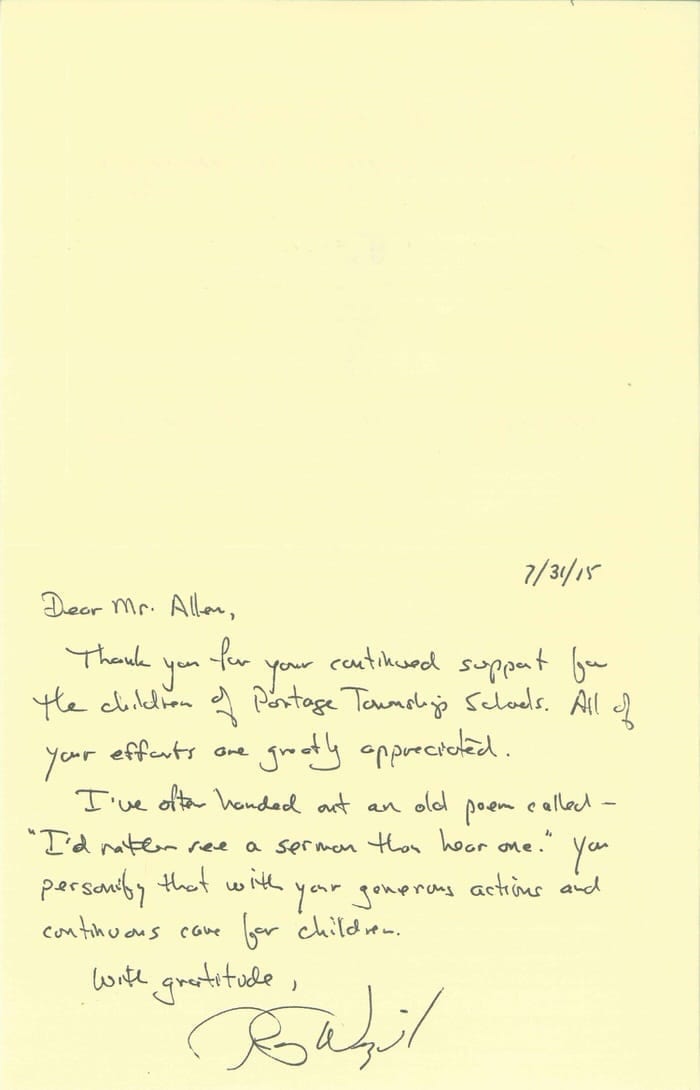 7/31/15
Dear Mr. Allen,
Thank you for your continued support for
the children of Portage Township Schools. All of
your efforts are greatly appreciated.
I've often handed out an old poem called –
"I'd rather see a sermon than hear one." You
personify that with your generous actions and
continuous care for children.
With gratitude,